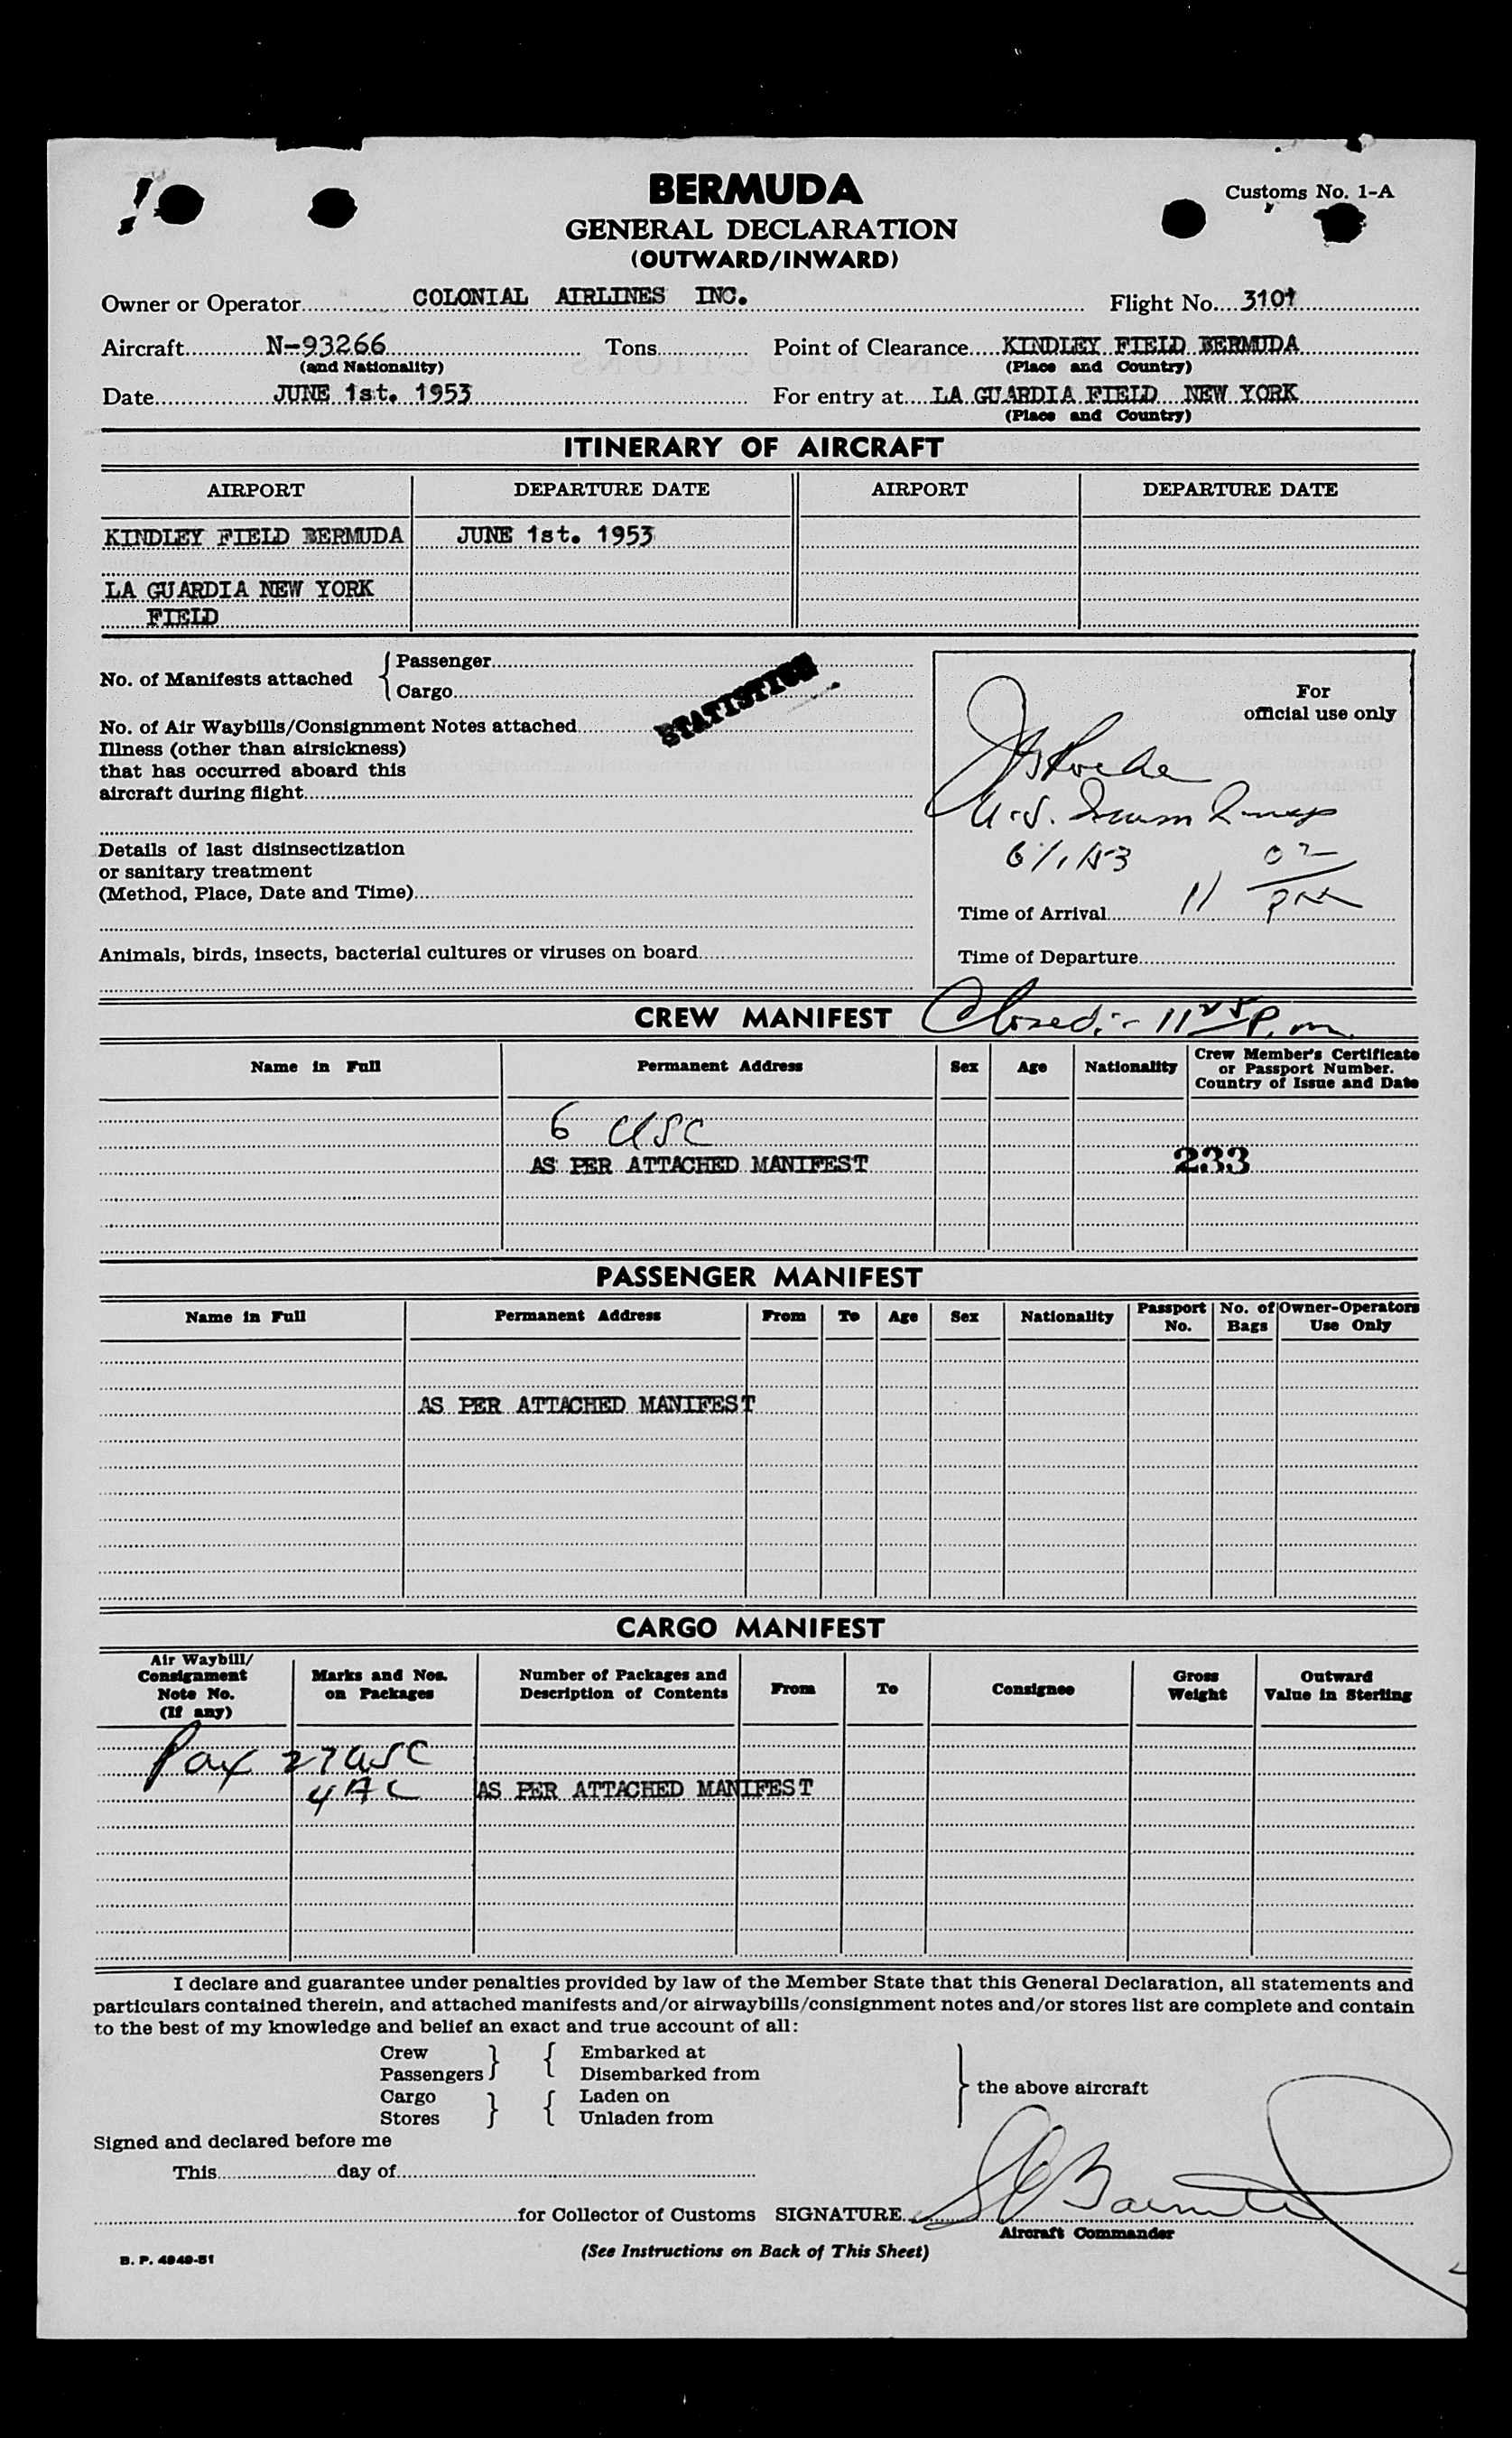 BERMUDA
Customs No. 1-A
GENERAL DECLARATION
(OUTWARD/INWARD)
Owner or Operator COLONIAL AIRLINES INC. Flight No. 3101
Aircraft N-93266 Tons Point of Clearance KINDLEY FIELD BERMUDA
(and Nationality) (Place and Country)
Date JUNE 1st. 1953 For entry at LA GUARDIA FIELD NEW YORK
(Place and Country)
ITINERARY OF AIRCRAFT
AIRPORT DEPARTURE DATE AIRPORT DEPARTURE DATE
KINDLEY FIELD BERMUDA JUNE 1st. 1953
LA GUARDIA NEW YORK
FIELD
No. of Manifests attached { Passenger
Cargo
STATISTICS
No. of Air Waybills/Consignment Notes attached
Illness (other than airsickness)
that has occurred aboard this
aircraft during flight
Details of last disinsectization
or sanitary treatment
(Method, Place, Date and Time)
Animals, birds, insects, bacterial cultures or viruses on board
For
official use only
U.S.
6/1/53
Time of Arrival 11 02 PM
Time of Departure
CREW MANIFEST Closed:- 11 25 P.m.
Name in Full Permanent Address Sex Age Nationality Crew Member's Certificate
or Passport Number.
Country of Issue and Date
6 USC
AS PER ATTACHED MANIFEST 233
PASSENGER MANIFEST
Name in Full Permanent Address From To Age Sex Nationality Passport No. No. of Bags Owner-Operators Use Only
AS PER ATTACHED MANIFEST
CARGO MANIFEST
Air Waybill/
Consignment
Note No.
(If any)
Marks and Nos.
on Packages
Number of Packages and
Description of Contents
From To Consignee
Gross
Weight
Outward
Value in Sterling
Pax 27 USC
4 AC AS PER ATTACHED MANIFEST
I declare and guarantee under penalties provided by law of the Member State that this General Declaration, all statements and
particulars contained therein, and attached manifests and/or airwaybills/consignment notes and/or stores list are complete and contain
to the best of my knowledge and belief an exact and true account of all:
Crew } { Embarked at
Passengers Disembarked from
} the above aircraft
Cargo } { Laden on
Stores Unladen from
Signed and declared before me
This day of
for Collector of Customs SIGNATURE
Aircraft Commander
(See Instructions on Back of This Sheet)
B. P. 4949-51